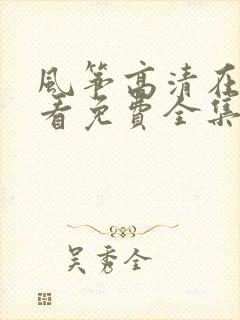 风筝高清在
看免费全集
吴秀全